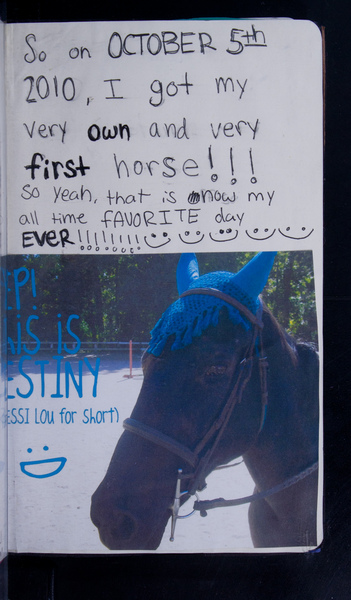 So on OCTOBER 5th
2010, I got my
very own and very
first horse!!!
So yeah, that is now my
all time FAVORITE day
EVER!!!!!!!!!
EP!
iS iS
ESTiNY
ESSI LOU for short)